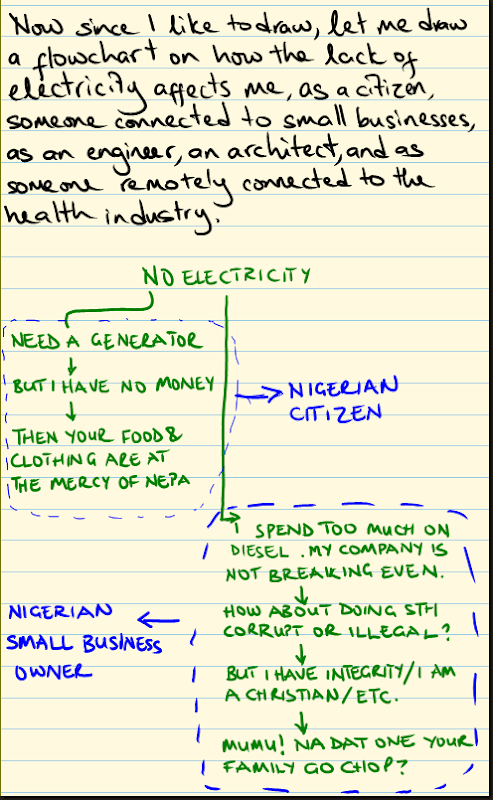 Now since I like to draw, let me draw
a flowchart on how the lack of
electricity affects me, as a citizen,
someone connected to small businesses,
as an engineer, an architect, and as
someone remotely connected to the
health industry.
NO ELECTRICITY
NEED A GENERATOR
BUT I HAVE NO MONEY
THEN YOUR FOOD &
CLOTHING ARE AT
THE MERCY OF NEPA
NIGERIAN
CITIZEN
I SPEND TOO MUCH ON
DIESEL. MY COMPANY IS
NOT BREAKING EVEN.
HOW ABOUT DOING STH
CORRUPT OR ILLEGAL?
BUT I HAVE INTEGRITY/I AM
A CHRISTIAN/ETC.
MUMU! NA DAT ONE YOUR
FAMILY GO CHOP?
NIGERIAN
SMALL BUSINESS
OWNER